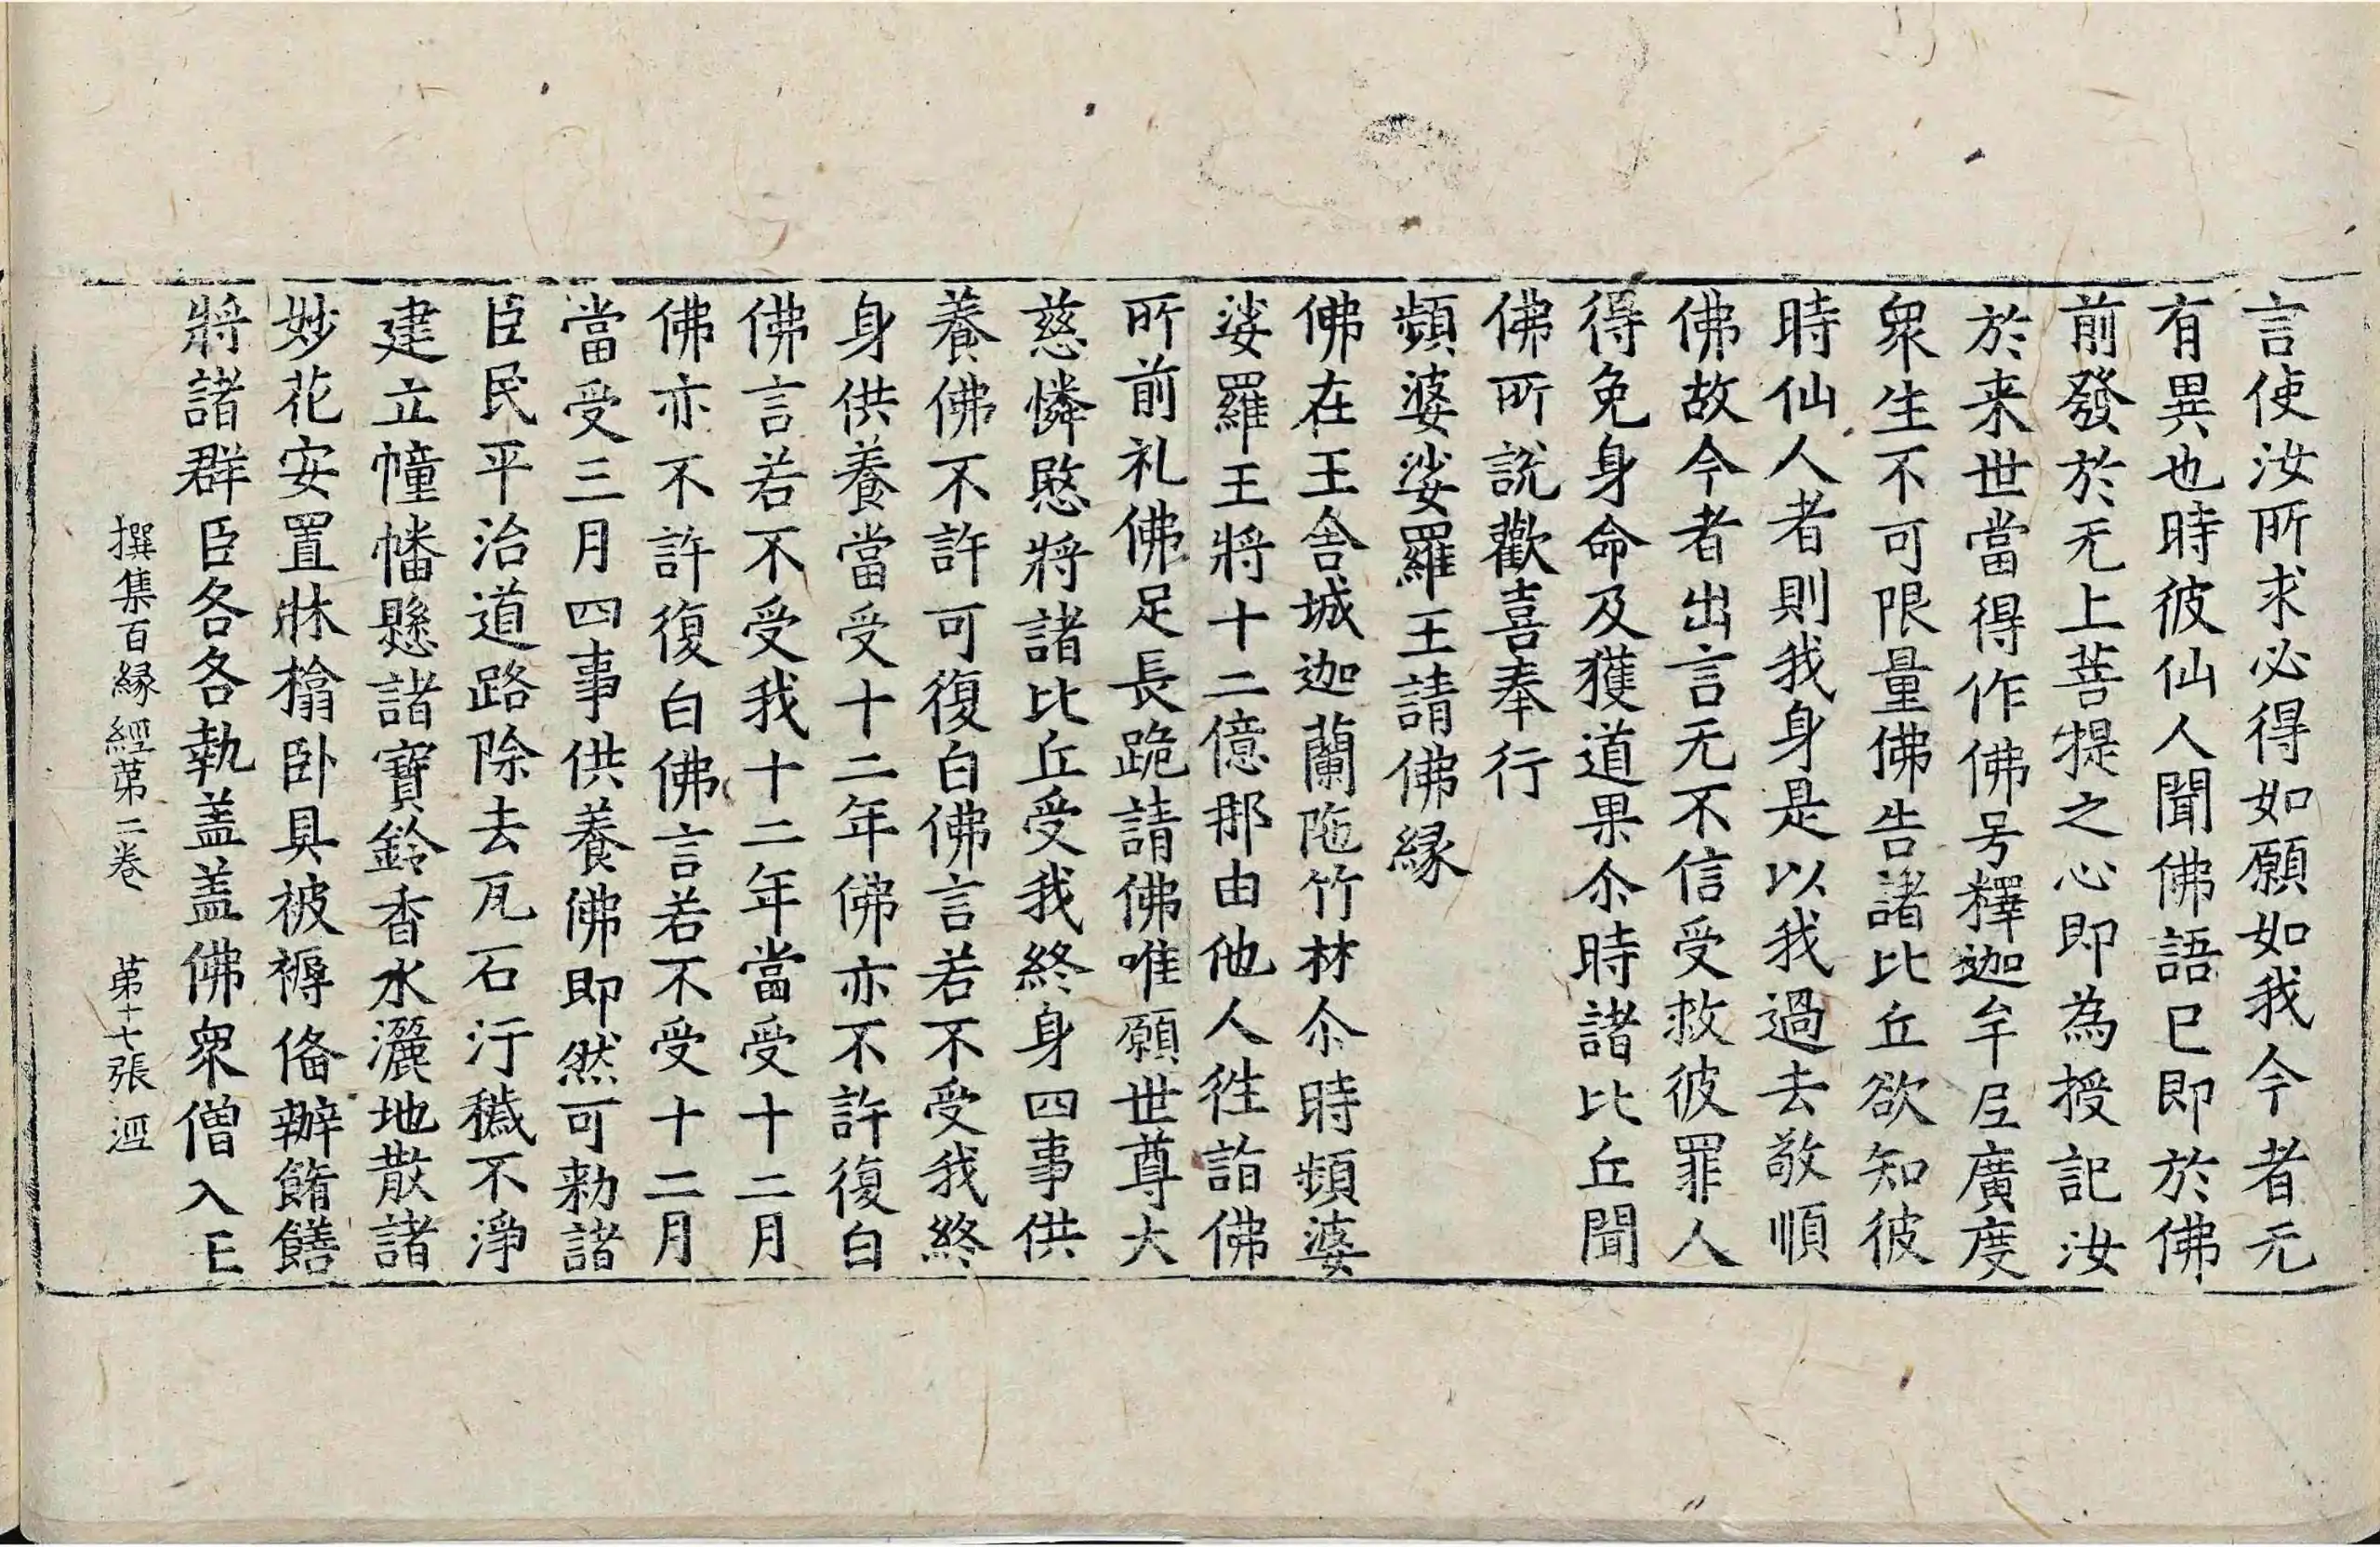 言使汝所求必得如願如我今者无
有異也時彼仙人聞佛語已即於佛
前發於无上菩提之心即為授記汝
於来世當得作佛号釋迦牟尼廣度
衆生不可限量佛告諸比丘欲知彼
時仙人者則我身是以我過去敬順
佛故今者出言无不信受救彼罪人
得免身命及獲道果尒時諸比丘聞
佛所說歡喜奉行
頻婆娑羅王請佛緣
佛在王舍城迦蘭陁竹林尒時頻婆
娑羅王將十二億那由他人徃詣佛
所前礼佛足長跪請佛唯願世尊大
慈憐愍將諸比丘受我終身四事供
養佛不許可復白佛言若不受我終
身供養當受十二年佛亦不許復白
佛言若不受我十二年當受十二月
佛亦不許復白佛言若不受十二月
當受三月四事供養佛即然可勑諸
臣民平治道路除去瓦石汙穢不淨
建立幢幡懸諸寶鈴香水灑地散諸
妙花安置牀榻卧具被褥俻辦餚饍
將諸群臣各各執盖盖佛衆僧入王
撰集百緣經苐二卷 苐十七張 逕